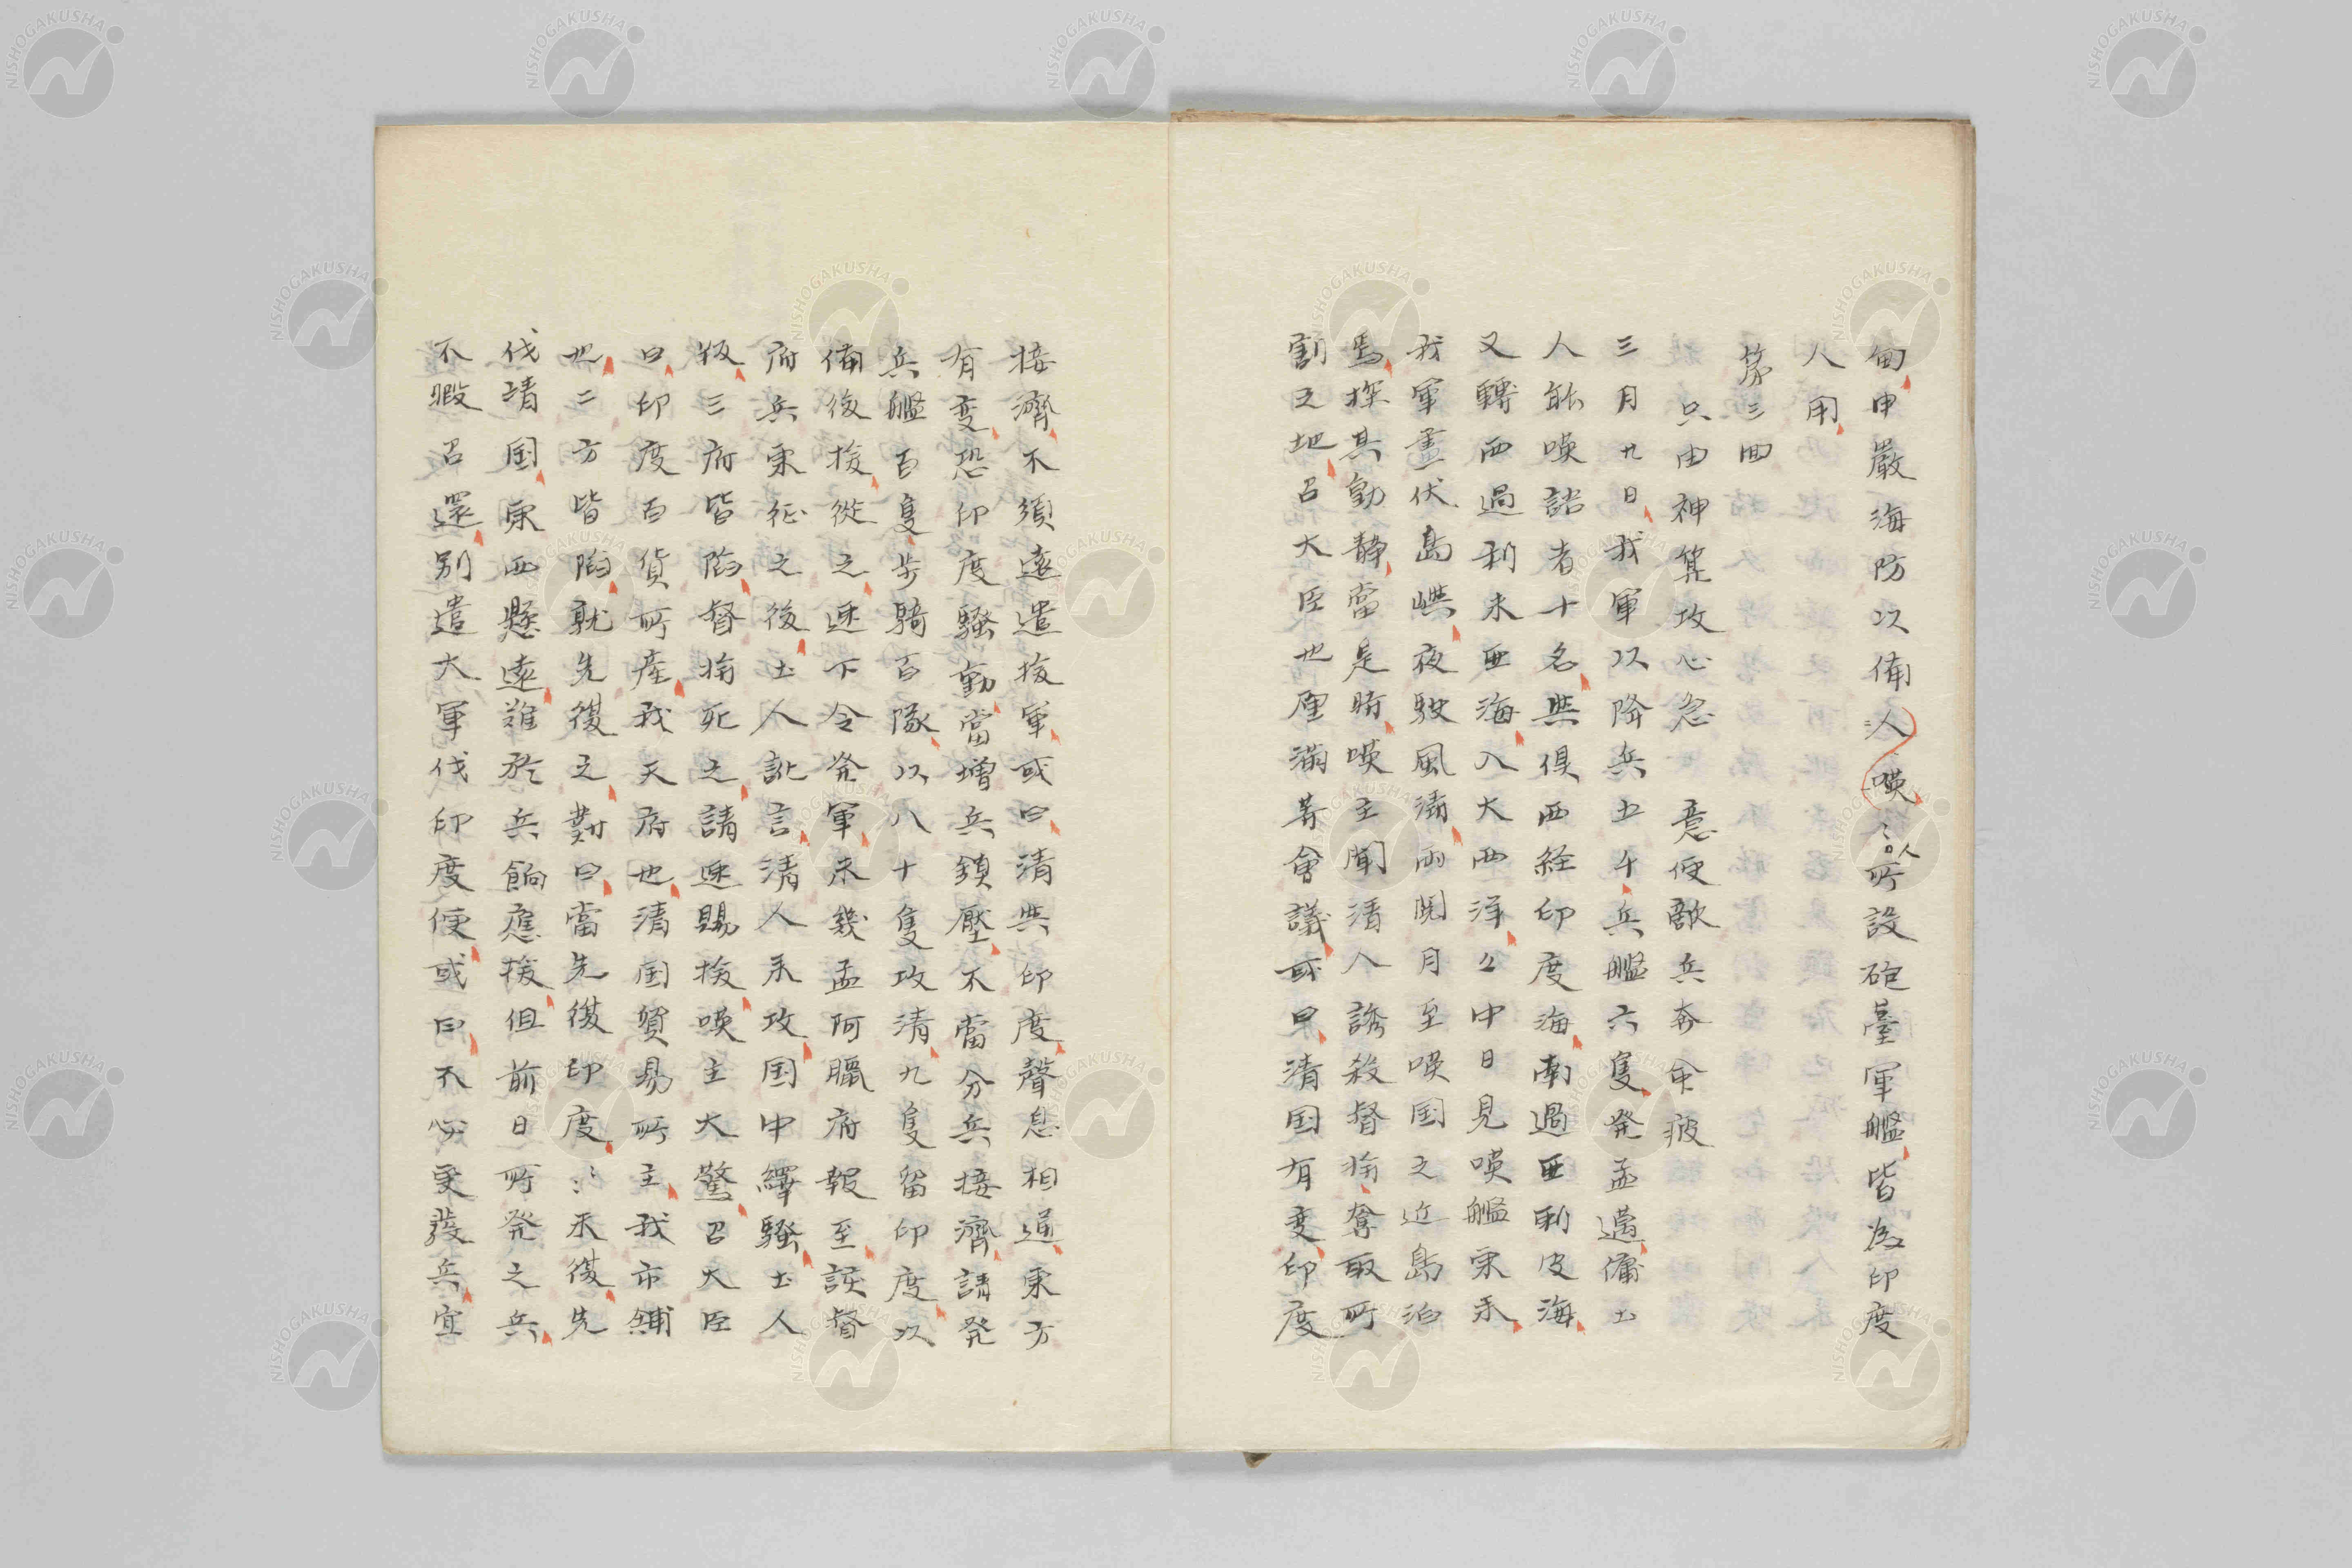 甸申嚴海防以備人嘆〻所設砲臺軍艦皆為印度
人用
第三回
只由神算攻心急　意使敵兵奔命疲
三月九日我軍以降兵五千兵艦六隻発孟邁傭土
人能嘆語者十名与俱西経印度海南過亜利皮海
又轉而過利未亜海入大西洋〻中日見嘆艦東来
我軍晝伏島嶼夜駛風濤雨閲月至嘆国之近島泊
焉探其動静當是時嘆主聞清人誘殺督揄奪取所
割之地召大臣也厘満著會議或曰清国有変印度
接濟不須遠遣援軍或曰清与印度聲息相通東方
有変恐印度騷動當増兵鎮壓不當分兵接濟請発
兵艦百隻歩騎百隊以八十隻攻清九隻留印度以
備後援従之速下令発軍未幾孟阿臘府報至誤督
府兵東征之後土人訛言清人来攻国中繹騷土人
叛三府皆陷督揄死之請速賜援嘆主大驚召大臣
曰印度百貨所産我天府也清国貿易所主我市舗
也二方皆陷就先復之對曰當先復印度〻〻未復先
伐清国東西懸遠難於兵餉應援但前日所発之兵
不暇召還別遣大軍伐印度便或曰不必更發兵宜